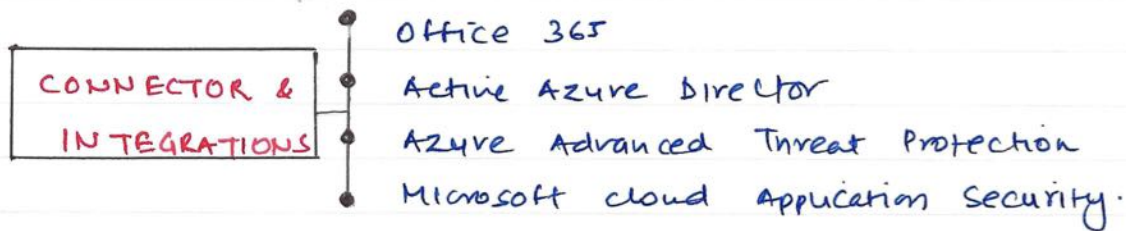 CONNECTOR &
INTEGRATIONS
Office 365
Active Azure Director
Azure Advanced Threat Protection
Microsoft cloud Application Security.